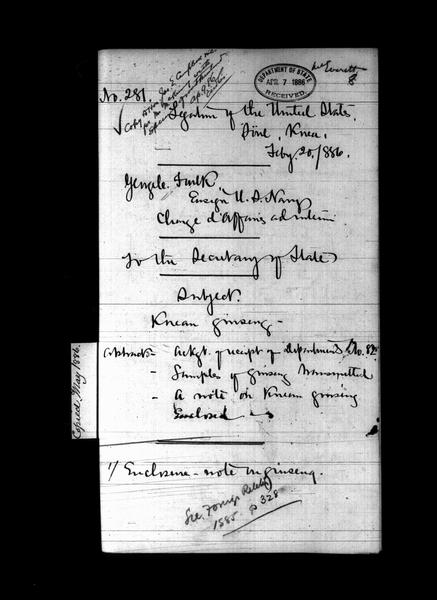 No. 281.
DEPARTMENT OF STATE
APR 7 1886
RECEIVED.
Legation of the United States,
Söul, Korea,
Feby. 20, 1886.
George C. Foulk,
Ensign U. S. Navy
Chargé d'Affaires ad interim
To the Secretary of State
Subject.
Korean ginseng -
Abstract - Ackgt. of receipt of Department's No. 82
- Samples of Ginseng transmitted
- A note on Korean ginseng
Enclosed
Copied, May 1886.
1/ Enclosure - note on ginseng.
See. Foreign Relat
1885. p 328